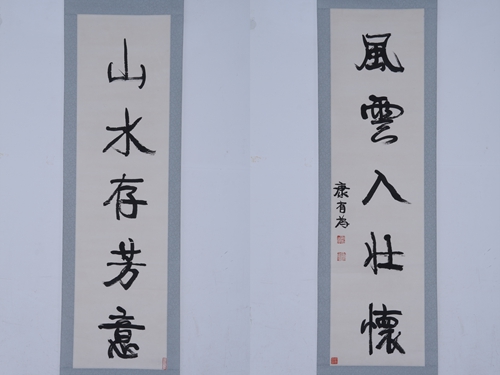 風雲入壯懷
康有為
山水存芳意